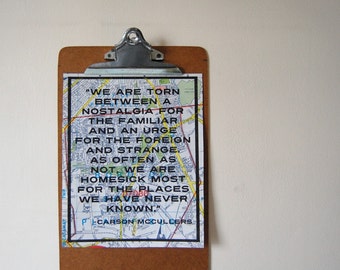 "WE ARE TORN
BETWEEN A
NOSTALGIA FOR
THE FAMILIAR
AND AN URGE
FOR THE FOREIGN
AND STRANGE.
AS OFTEN AS
NOT, WE ARE
HOMESICK MOST
FOR THE PLACES
WE HAVE NEVER
KNOWN."
- CARSON MCCULLERS